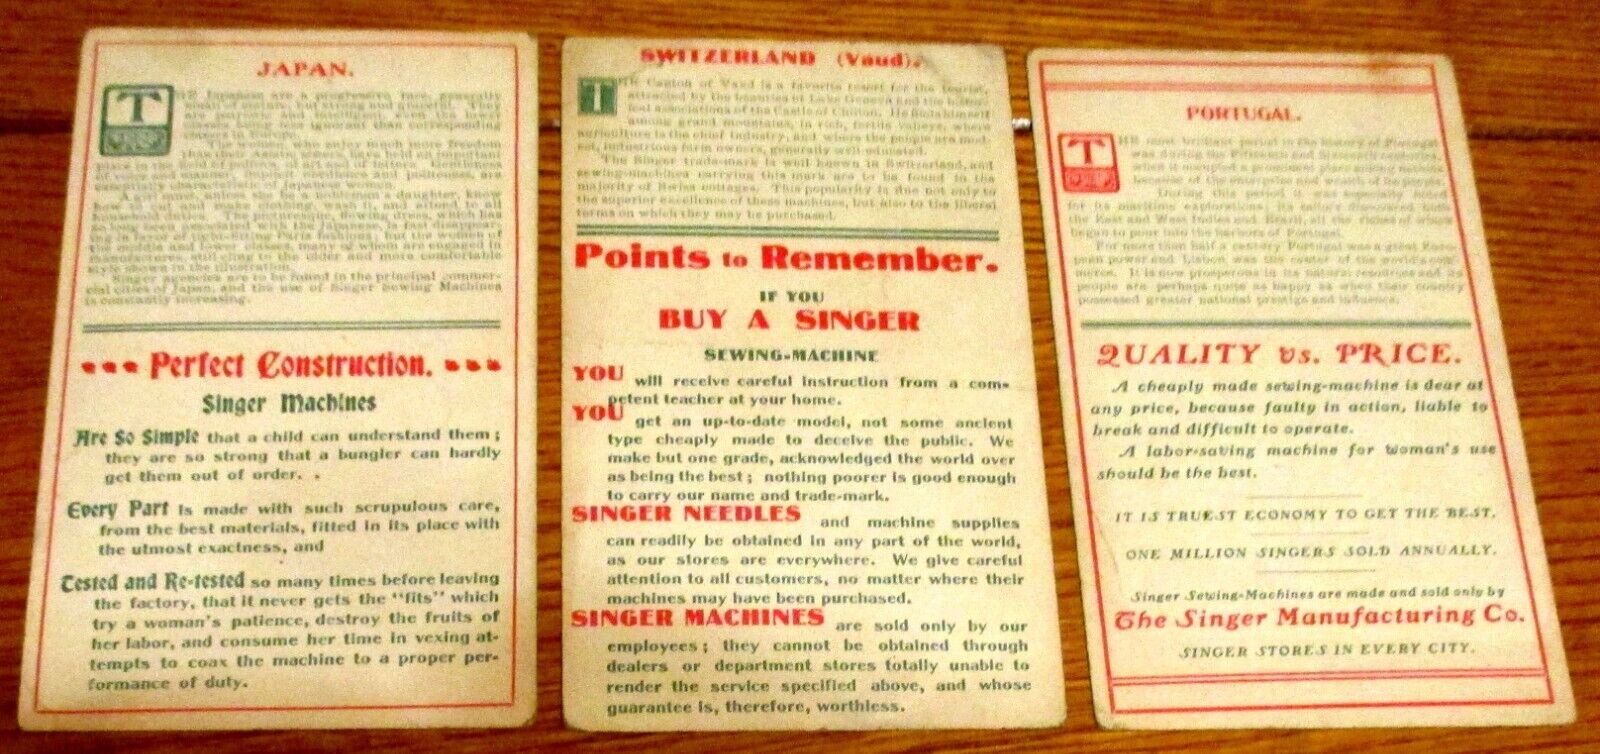 JAPAN.
THE Japanese are a progressive race, generally
small of stature, but strong and graceful. They
are patriotic and intelligent, even the lower
classes being less ignorant than corresponding
classes in Europe.
The women, who enjoy much more freedom
than their Asiatic sisters, have held an important
place in the field of politics, art and of letters. Gentleness
of voice and manner, implicit obedience and politeness, are
essentially characteristic of Japanese women.
A girl must, unless she be a nobleman's daughter, know
how to sew, make clothing, wash it, and attend to all
household duties. The picturesque, flowing dress, which has
so long been associated with the Japanese, is fast disappear-
ing in favor of close-fitting Paris fashions, but the women of
the middle and lower classes, many of whom are engaged in
manufactures, still cling to the older and more comfortable
style shown in the illustration.
Singer agencies are to be found in the principal commer-
cial cities of Japan, and the use of Singer Sewing Machines
is constantly increasing.
Perfect Construction.
Singer Machines
Are So Simple that a child can understand them;
they are so strong that a bungler can hardly
get them out of order. .
Every Part is made with such scrupulous care,
from the best materials, fitted in its place with
the utmost exactness, and
Tested and Re-tested so many times before leaving
the factory, that it never gets the "fits" which
try a woman's patience, destroy the fruits of
her labor, and consume her time in vexing at-
tempts to coax the machine to a proper per-
formance of duty.
SWITZERLAND (Vaud).
THE Canton of Vaud is a favorite resort for the tourist,
attracted by the beauties of Lake Geneva and the histori-
cal associations of the Castle of Chillon. He finds himself
among grand mountains, in rich, fertile valleys, where
agriculture is the chief industry, and where the people are mod-
est, industrious farm owners, generally well-educated.
The Singer trade-mark is well known in Switzerland, and
sewing-machines carrying this mark are to be found in the
majority of Swiss cottages. This popularity is due not only to
the superior excellence of these machines, but also to the liberal
terms on which they may be purchased.
Points to Remember.
IF YOU
BUY A SINGER
SEWING-MACHINE
YOU will receive careful instruction from a com-
petent teacher at your home.
YOU get an up-to-date model, not some ancient
type cheaply made to deceive the public. We
make but one grade, acknowledged the world over
as being the best; nothing poorer is good enough
to carry our name and trade-mark.
SINGER NEEDLES and machine supplies
can readily be obtained in any part of the world,
as our stores are everywhere. We give careful
attention to all customers, no matter where their
machines may have been purchased.
SINGER MACHINES are sold only by our
employees; they cannot be obtained through
dealers or department stores totally unable to
render the service specified above, and whose
guarantee is, therefore, worthless.
PORTUGAL.
THE most brilliant period in the history of Portugal
was during the Fifteenth and Sixteenth centuries,
when it occupied a prominent place among nations
because of the enterprise and wealth of its people.
During this period it was especially noted
for its maritime explorations; its sailors discovered both
the East and West Indies and Brazil; all the riches of which
began to pour into the harbors of Portugal.
For more than half a century Portugal was a great Euro-
pean power and Lisbon was the center of the world's com-
merce. It is now prosperous in its natural resources and its
people are perhaps quite as happy as when their country
possessed greater national prestige and influence.
QUALITY vs. PRICE.
A cheaply made sewing-machine is dear at
any price, because faulty in action, liable to
break and difficult to operate.
A labor-saving machine for woman's use
should be the best.
IT IS TRUEST ECONOMY TO GET THE BEST.
ONE MILLION SINGERS SOLD ANNUALLY.
Singer Sewing-Machines are made and sold only by
The Singer Manufacturing Co.
SINGER STORES IN EVERY CITY.